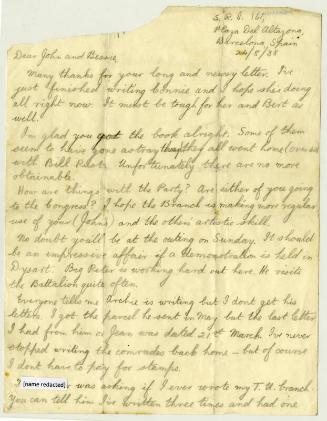 S.R.I. 161,
Plaza Del Altozona,
Barcelona, Spain
24/8/38
Dear John and Bessie,
Many thanks for your long and newsy letter. I've
just finished writing Connie and I hope she's doing
all right now. It must be tough for her and Bert as
well.
I'm glad you got the book alright. Some of them
seem to have gone astray they all went home (
with Bill Unfortunately there are no more
obtainable.
How are things with the Party? Are either of you going
to the Congress? I hope the Branch is making more regular
use of your (John's) and the others artistic skill.
No doubt you'll be at the outing on Sunday. It should
be an impressive affair if a demonstration is held in
Dysart. Big Peter is working hard out here. He visits
the Battalion quite often.
Everyone tells me Archie is writing but I dont get his
letters. I got the parcel he sent in May but the last letter
I had from him or Jean was dated 21st March. I've never
stopped writing the comrades back home - but of course
I dont have to pay for stamps.
[name redacted] was asking if I ever wrote my T.U. branch.
You can tell him I've written three times and had one